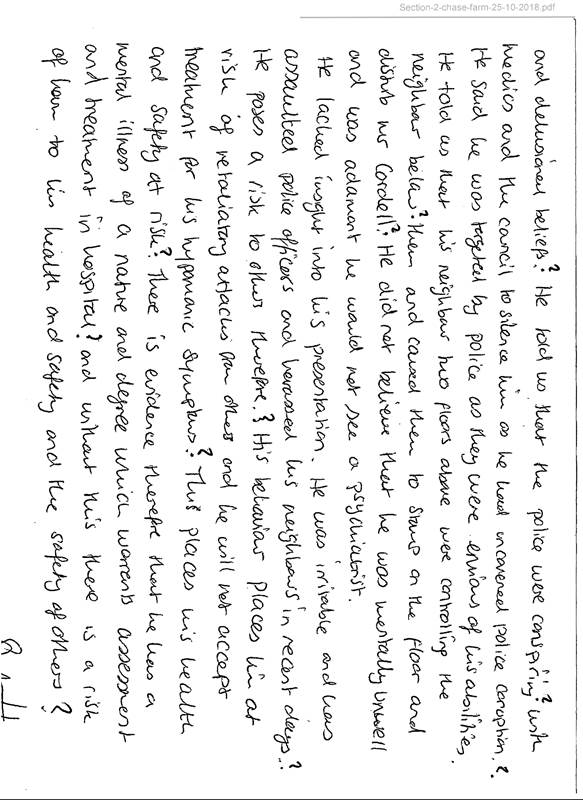 Section-2-chase-farm-25-10-2018.pdf
and delusional beliefs? He told us that the police were conspiring? with
medics and the council to silence him as he had uncovered police corruption.?.
He said he was targeted by police as they were envious of his abilities.
He told us that his neighbour two floors above were controlling the
neighbour below? them and caused them to stamp on the floor and
disturb Mr Cordell? He did not believe that he was mentally unwell
and was adamant he would not see a psychiatrist.
He lacked insight into his presentation. He was irritable and has
assaulted police officers and harassed his neighbours in recent days..?
He poses a risk to others therefore.? His behaviour places him at
risk of retaliatory attacks from others and he will not accept
treatment for his hypomanic symptoms? This places his health
and safety at risk? There is evidence therefore that he has a
mental illness of a nature and degree which warrants assessment
and treatment in hospital? and without this there is a risk
of harm to his health and safety and the safety of others?